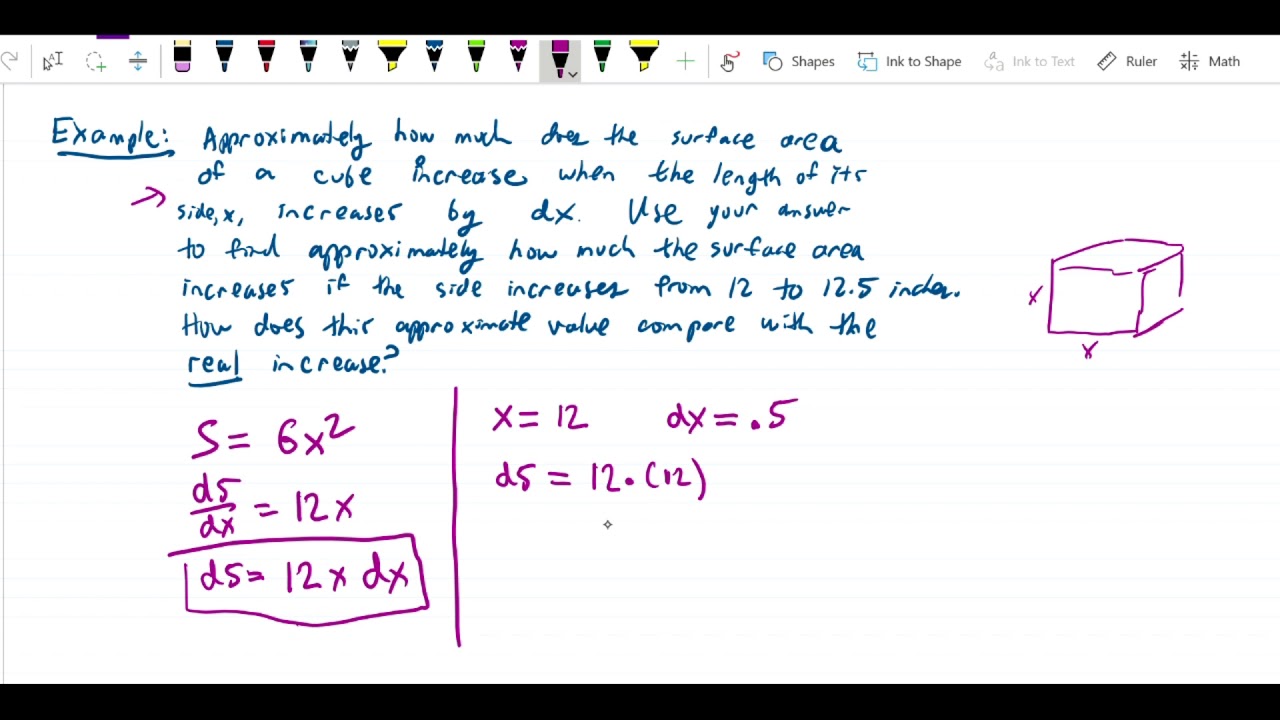 Shapes Ink to Shape Ink to Text Ruler Math
Example: Approximately how much does the surface area
of a cube increase when the length of its
side, x, increases by dx. Use your answer
to find approximately how much the surface area
increases if the side increases from 12 to 12.5 inches.
How does this approximate value compare with the
real increase?
x
x
S = 6x²
dS/dx = 12x
dS = 12x dx
x = 12 dx = .5
dS = 12·(12)